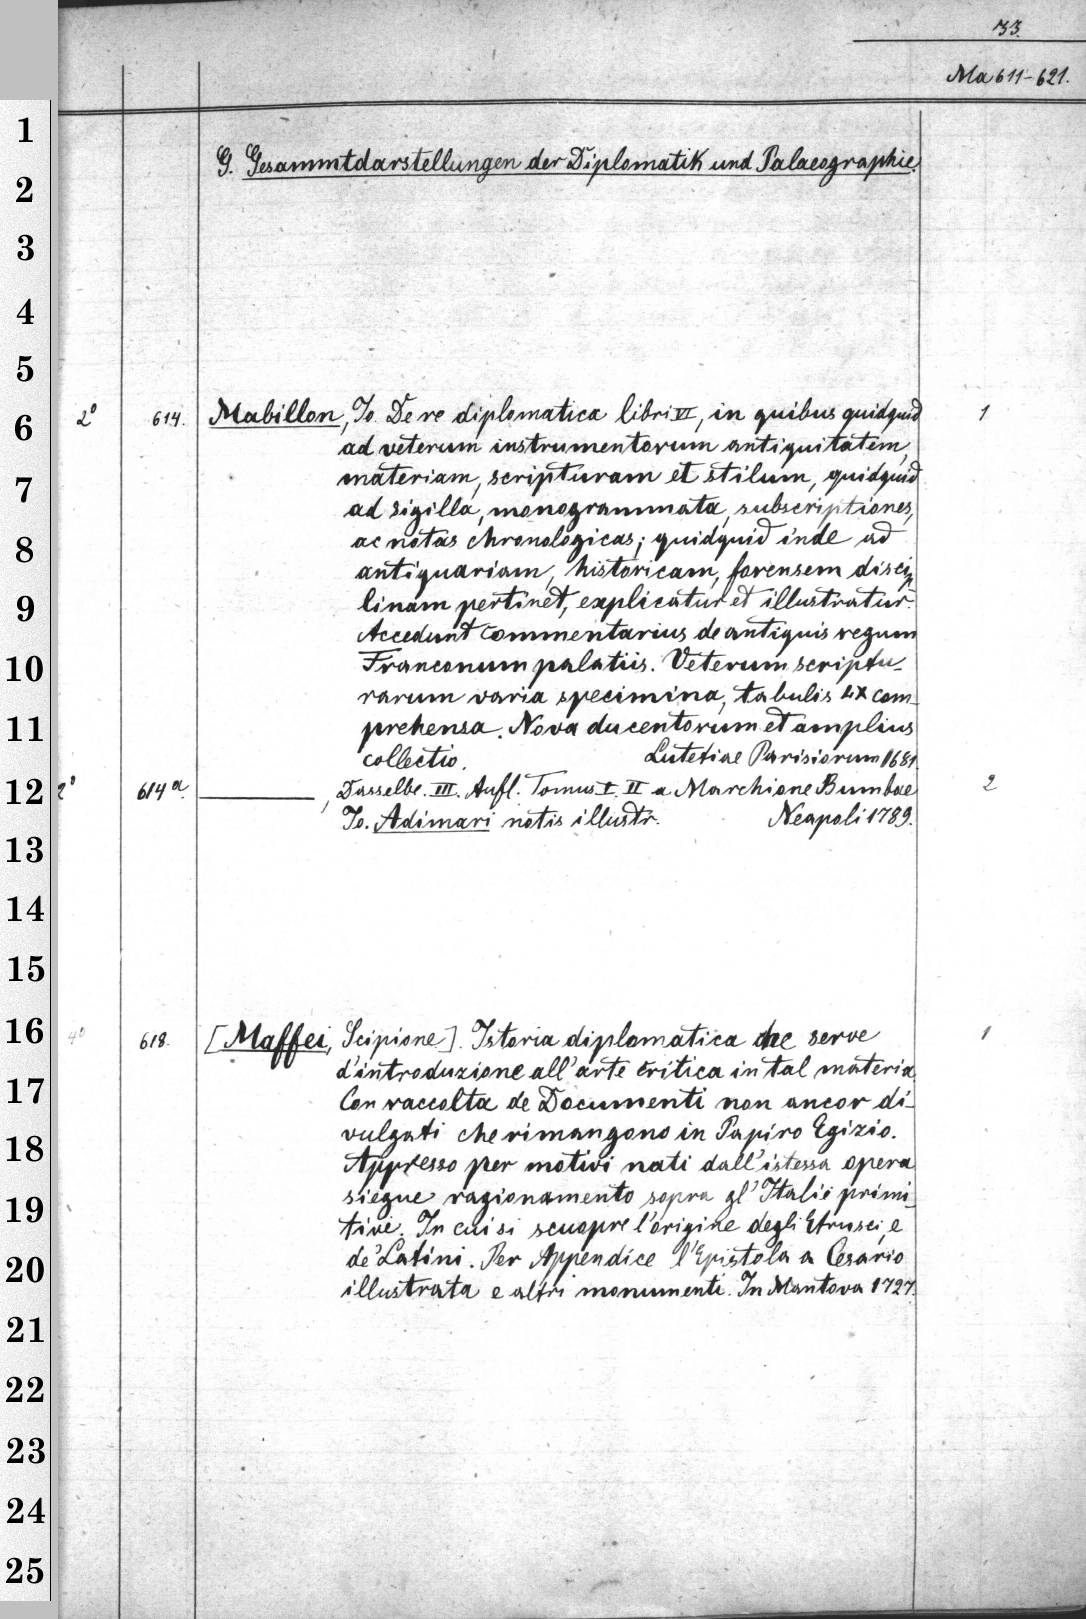 33.
Ma 611-621.
G. Gesammtdarstellungen der Diplomatik und Palaeographie.
2° 614. Mabillon, Jo. De re diplomatica libri VI, in quibus quidquid 1
ad veterum instrumentorum antiquitatem,
materiam, scripturam et stilum, quidquid
ad sigilla, monogrammata, subscriptiones,
ac notas chronologicas; quidquid inde ad
antiquariam, historicam, forensem discip
linam pertinet, explicatur et illustratur.
Accedunt commentarius de antiquis regum
Franconum palatiis. Veterum scriptu-
rarum varia specimina, tabulis LX com-
prehensa. Nova ducentorum et amplius
collectio. Lutetiae Parisiorum 1681.
2° 614a. ———, Dasselbe. III. Aufl. Tomus I. II a Marchione Bumbae 2
Jo. Adimari notis illustr. Neapoli 1789.
4° 618. [Maffei, Scipione]. Istoria diplomatica che serve 1
d'introduzione all'arte critica in tal materia.
Con raccolta de Documenti non ancor di-
vulgati che rimangono in Papiro Egizio.
Appresso per motivi nati dall'istessa opera
siegue ragionamento sopra gl'Italii primi-
tivi. In cui si scuopre l'origine degli Etrusci, e
de' Latini. Per Appendice l'Epistola a Cesario
illustrata e altri monumenti. In Mantova 1727.
1
2
3
4
5
6
7
8
9
10
11
12
13
14
15
16
17
18
19
20
21
22
23
24
25